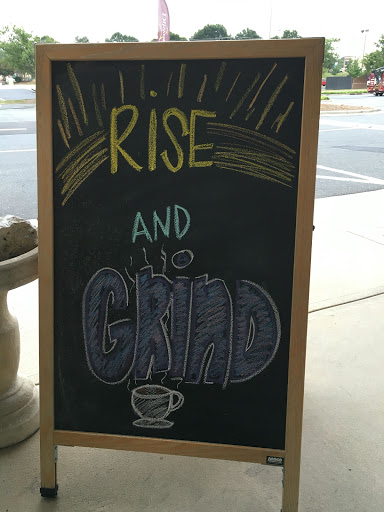 RiSE
AND
GRinD